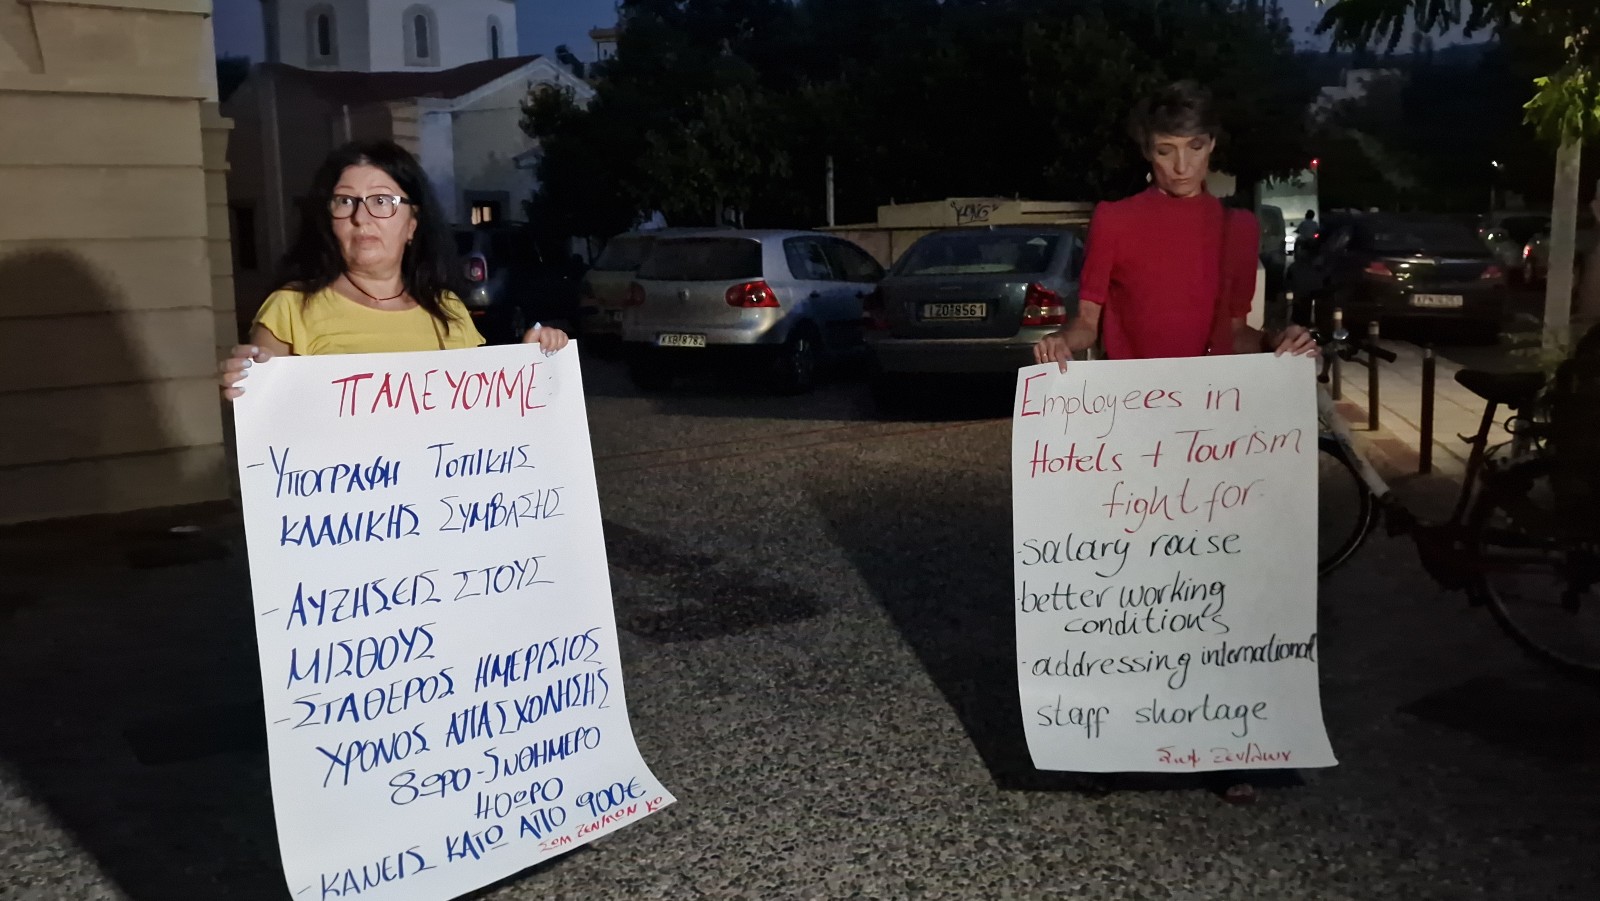 ΠΑΛΕΥΟΥΜΕ:
- ΥΠΟΓΡΑΦΗ ΤΟΠΙΚΗΣ
ΚΛΑΔΙΚΗΣ ΣΥΜΒΑΣΗΣ
- ΑΥΞΗΣΕΙΣ ΣΤΟΥΣ
ΜΙΣΘΟΥΣ
- ΣΤΑΘΕΡΟΣ ΗΜΕΡΙΣΙΟΣ
ΧΡΟΝΟΣ ΑΠΑΣΧΟΛΗΣΗΣ
8ΩΡΟ - 5ΝΘΗΜΕΡΟ
40ΩΡΟ
- ΚΑΝΕΙΣ ΚΑΤΩ ΑΠΟ 900€
ΣΩΜ ΞΕΝ/ΛΩΝ ΚΩ
Employees in
Hotels + Tourism
fight for:
- salary raise
- better working
conditions
- addressing international
staff shortage
Σωμ Ξεν/λων
KXB 8782
IZO 8561